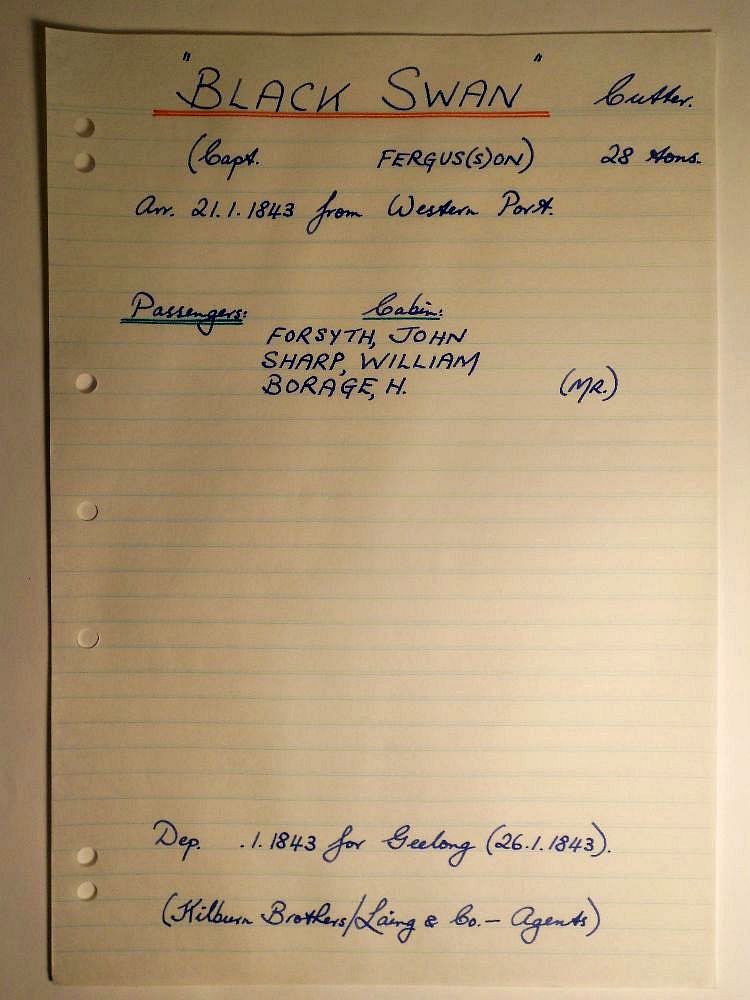 "BLACK SWAN" Cutter.
(Capt. FERGUS(S)ON) 28 tons.
Arr. 21.1.1843 from Western Port.
Passengers: Cabin:
FORSYTH, JOHN
SHARP, WILLIAM
BORAGE, H. (MR.)
Dep. .1.1843 for Geelong (26.1.1843).
(Kilburn Brothers/Laing & Co. — Agents)